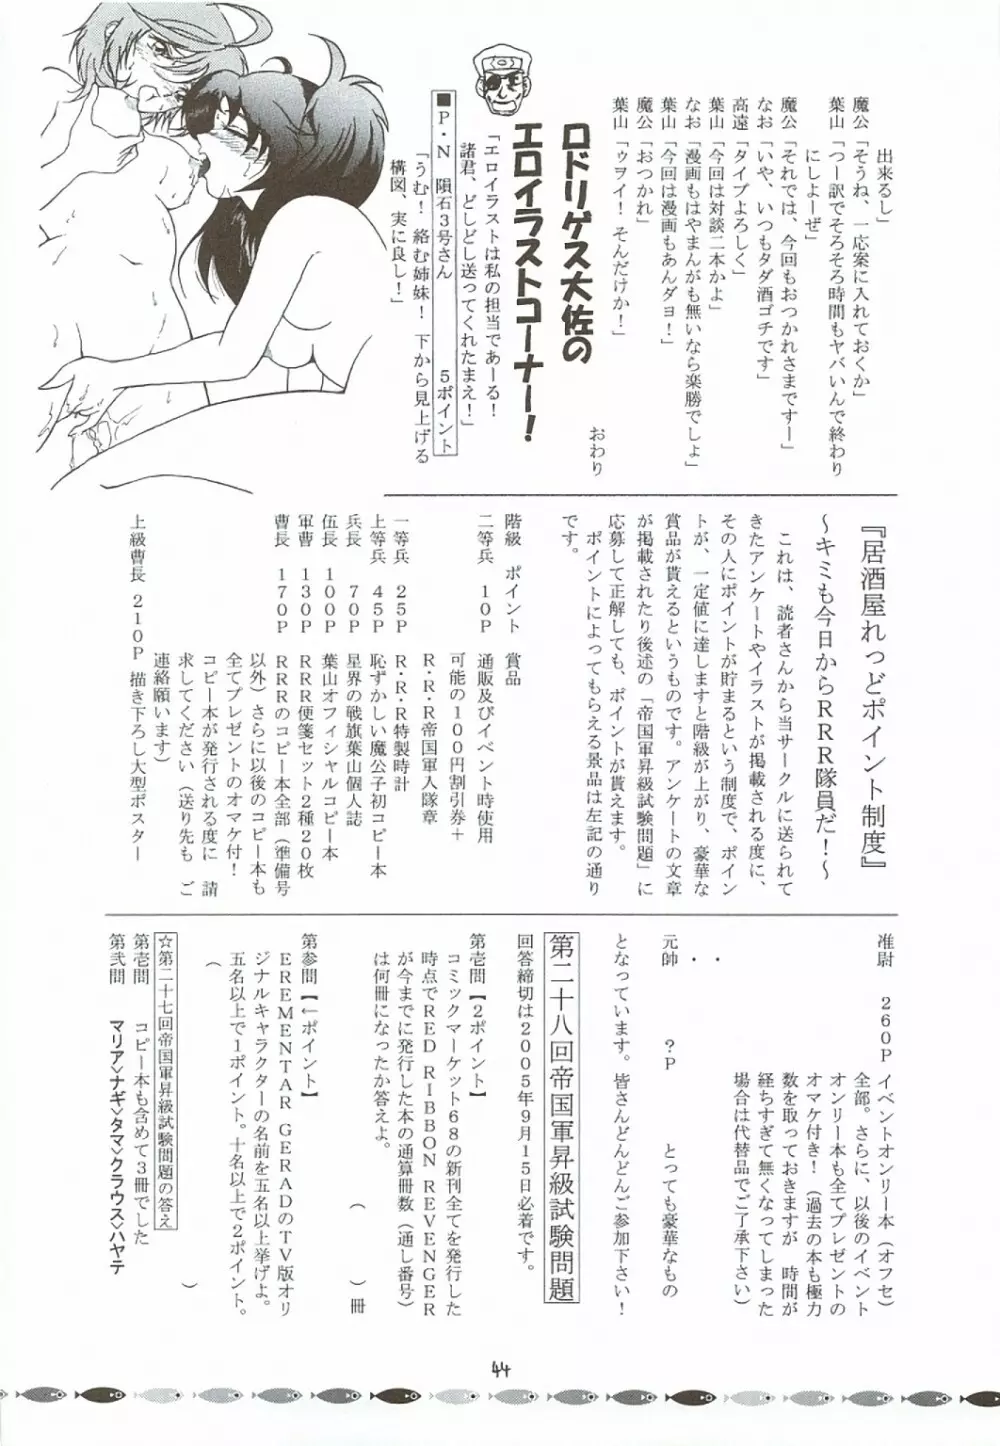 出来るし」
魔公「そうね、一応案に入れておくか」
葉山「つー訳でそろそろ時間もヤバいんで終わり
にしよーぜ」
魔公「それでは、今回もおつかれさまですー」
なお「いや、いつもタダ酒ゴチです」
高遠「タイプよろしく」
葉山「今回は対談二本かよ」
なお「漫画もはやまんがも無いなら楽勝でしょ」
葉山「今回は漫画もあんダヨ！」
魔公「おつかれ」
葉山「ゥヲイ！そんだけか！」
おわり
ロドリゲス大佐の
エロイラストコーナー！
「エロイラストは私の担当であーる！
諸君、どしどし送ってくれたまえ！」
■P・N　隕石3号さん　5ポイント
「うむ！絡む姉妹！下から見上げる
構図、実に良し！」
『居酒屋れっどポイント制度』
～キミも今日からRRR隊員だ！～
これは、読者さんから当サークルに送られて
きたアンケートやイラストが掲載される度に、
その人にポイントが貯まるという制度で、ポイン
トが、一定値に達しますと階級が上がり、豪華な
賞品が貰えるというものです。アンケートの文章
が掲載されたり後述の「帝国軍昇級試験問題」に
応募して正解しても、ポイントが貰えます。
ポイントによってもらえる景品は左記の通り
です。
階級　ポイント　賞品
二等兵　10P　通販及びイベント時使用
可能の100円割引券＋
R・R・R帝国軍入隊章
一等兵　25P　R・R・R特製時計
上等兵　45P　恥ずかしい魔公子初コピー本
兵長　70P　星界の戦旗葉山個人誌
伍長　100P　葉山オフィシャルコピー本
軍曹　130P　RRR便箋セット2種20枚
曹長　170P　RRRのコピー本全部（準備号
以外）さらに以後のコピー本も
全てプレゼントのオマケ付！
コピー本が発行される度に　請
求してください（送り先も　ご
連絡願います）
上級曹長　210P　描き下ろし大型ポスター
准尉　260P　イベントオンリー本（オフセ）
全部。さらに、以後のイベント
オンリー本も全てプレゼントの
オマケ付き！（過去の本も極力
数を取っておきますが　時間が
経ちすぎて無くなってしまった
場合は代替品でご了承下さい）
・
・
元帥　？P　とっても豪華なもの
となっています。皆さんどんどんご参加下さい！
第二十八回帝国軍昇級試験問題
回答締切は2005年9月15日必着です。
第壱問【2ポイント】
コミックマーケット68の新刊全てを発行した
時点でRED RIBBON REVENGER
が今までに発行した本の通算冊数（通し番号）
は何冊になったか答えよ。
（　）冊
第参問【←ポイント】
EREMENTAR GERADのTV版オリ
ジナルキャラクターの名前を五名以上挙げよ。
五名以上で1ポイント。十名以上で2ポイント。
（　）
☆第二十七回帝国軍昇級試験問題の答え
第壱問　コピー本も含めて3冊でした
第弐問　マリア＞ナギ＞タマ＞クラウス＞ハヤテ
44